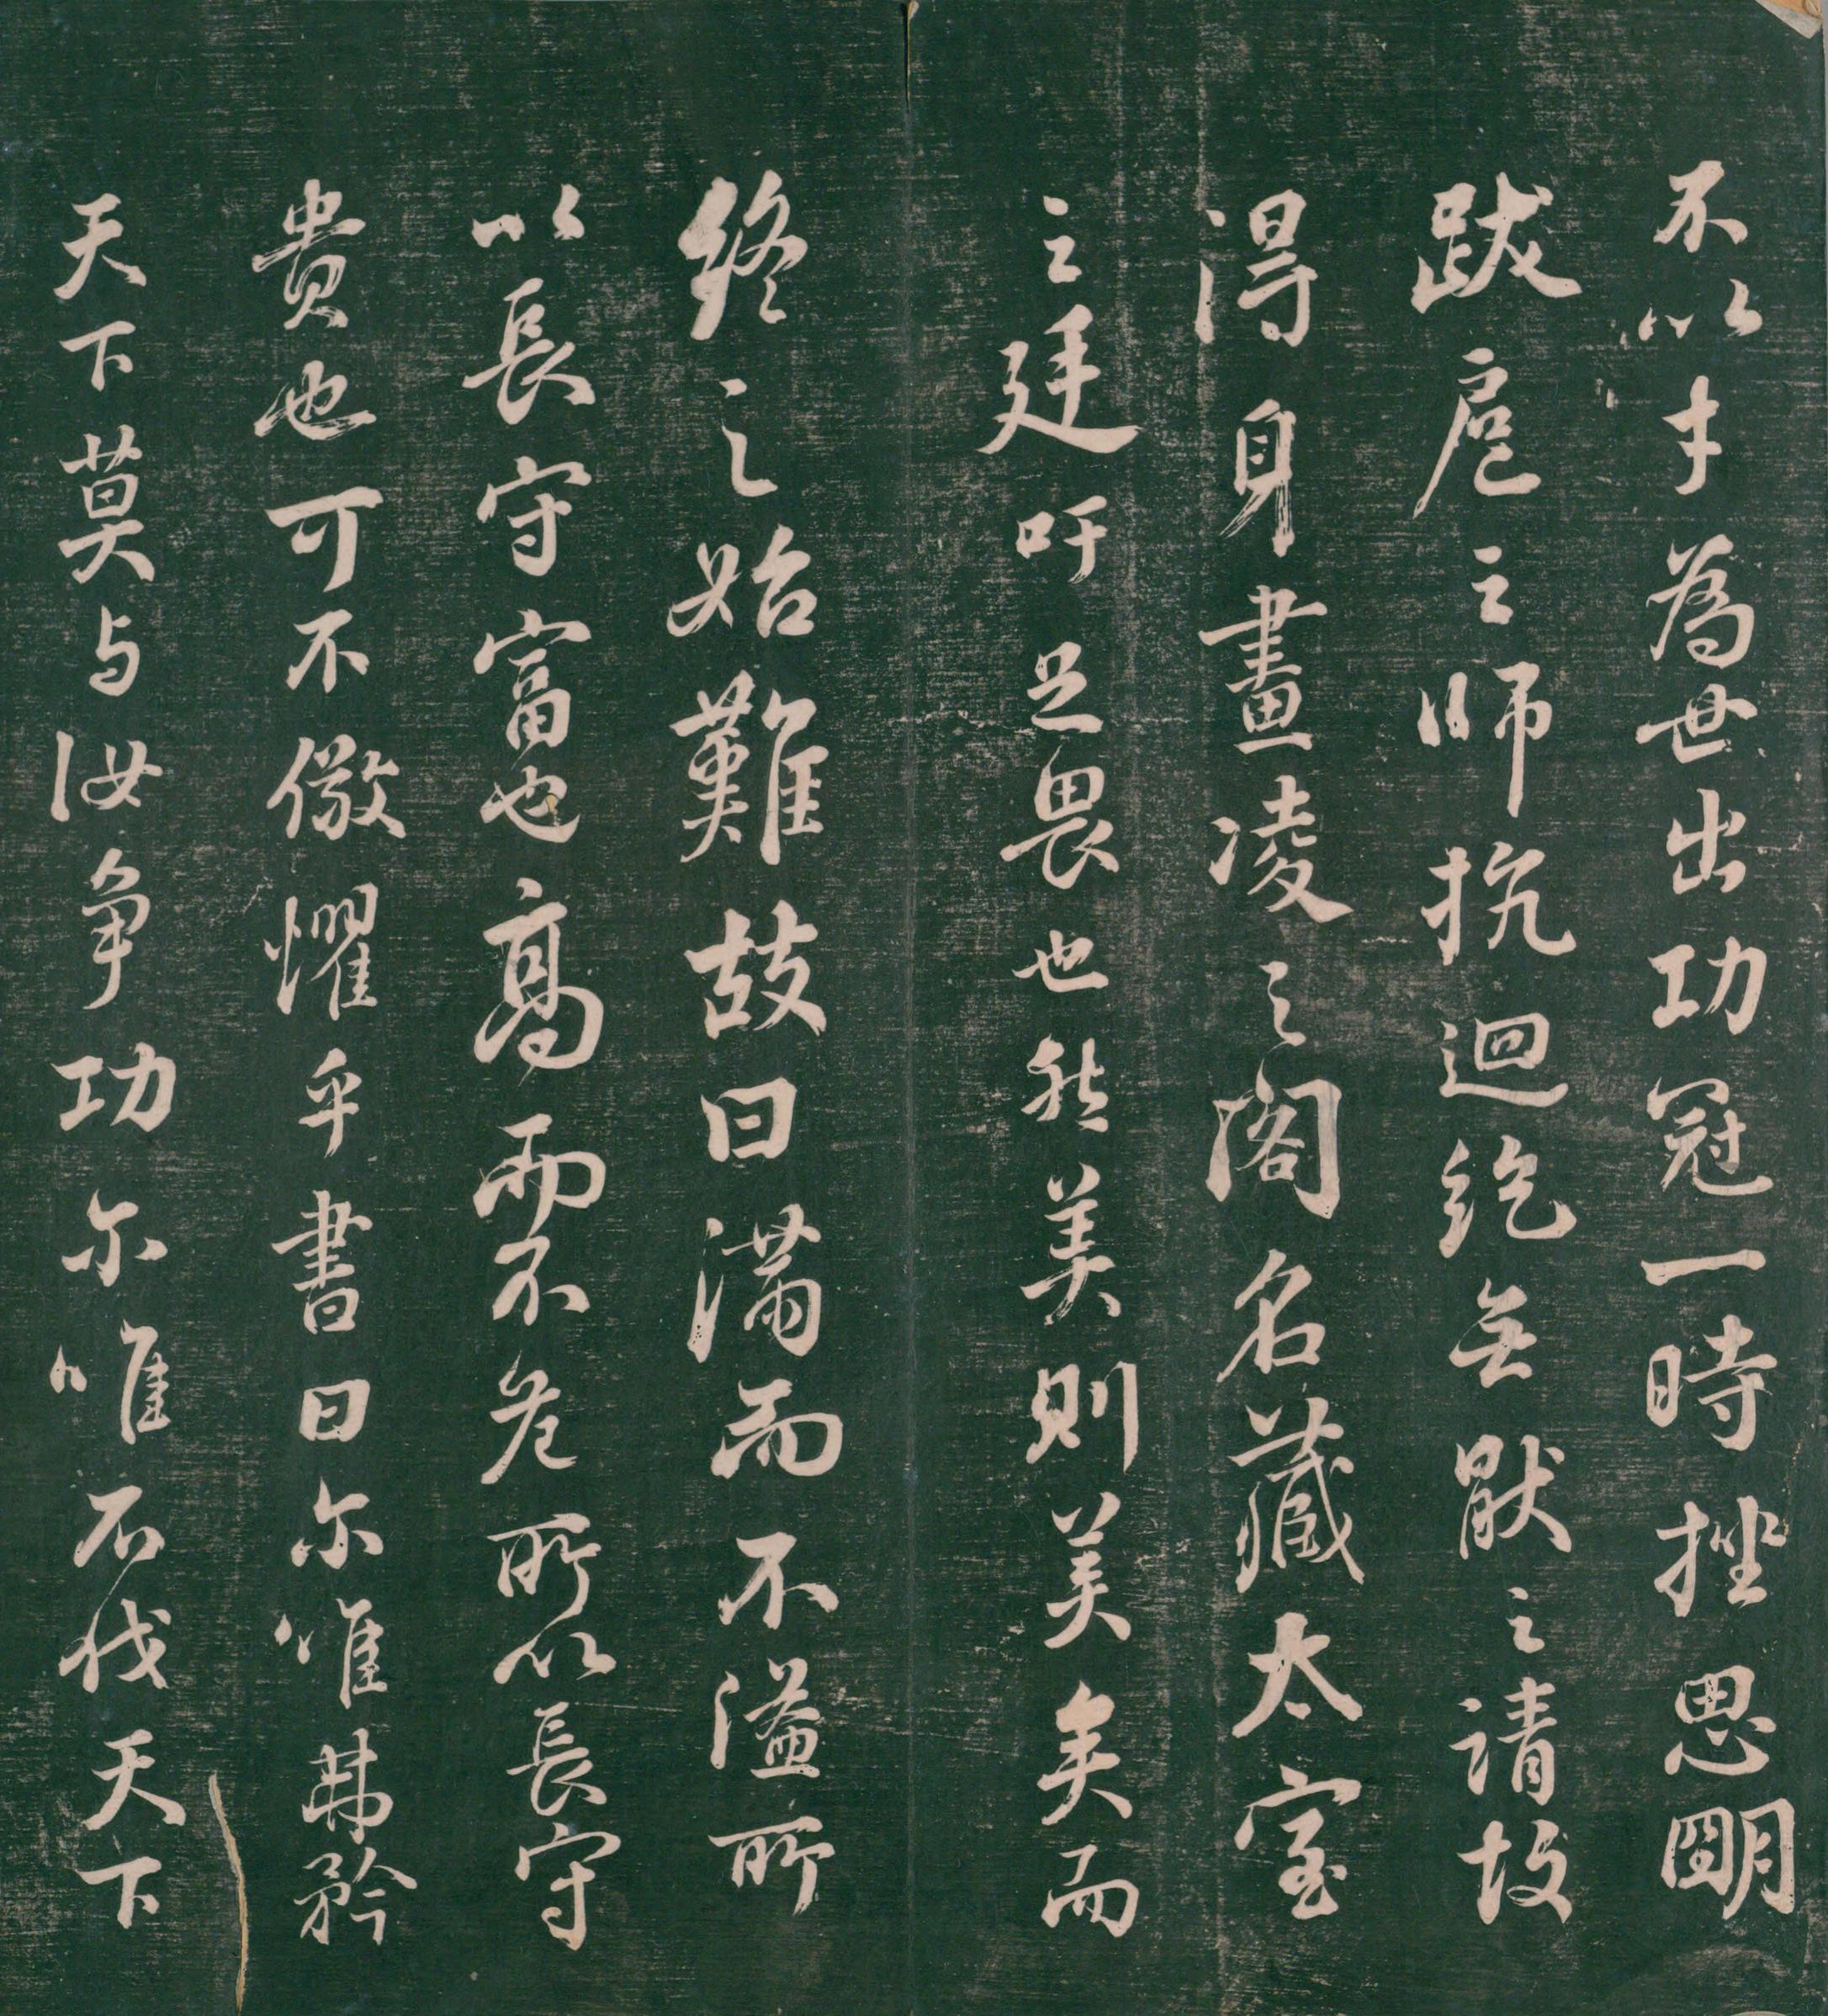 不以才為世出功冠一時挫思明
跋扈之師抗迴紇無猒之請故
得身畫凌之閣名藏太室
之廷吁足畏也然美則美矣而
終之始難故曰滿而不溢所
以長守富也高而不危所以長守
貴也可不儆懼乎書曰尔唯弗矜
天下莫与汝争功尔唯不伐天下